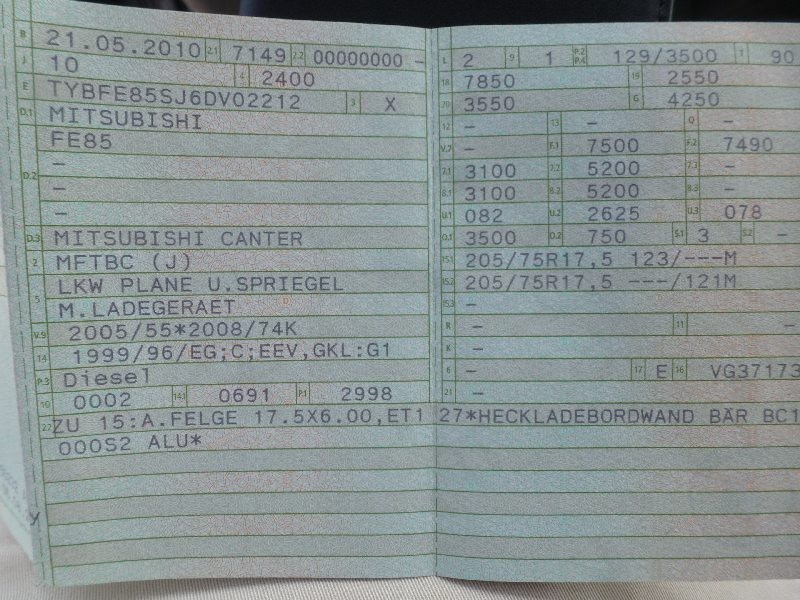 B 21.05.2010 2.1 7149 2.2 00000000 -
J 10 4 2400
E TYBFE85SJ6DV02212 3 X
D.1 MITSUBISHI
FE85
-
D.2 -
-
D.3 MITSUBISHI CANTER
2 MFTBC (J)
LKW PLANE U.SPRIEGEL
5 M.LADEGERAET
V.9 2005/55*2008/74K
14 1999/96/EG;C;EEV,GKL:G1
P.3 Diesel
10 0002 14.1 0691 P.1 2998
L 2 9 1 P.2 P.4 129/3500 T 90
18 7850 19 2550
20 3550 G 4250
12 - 13 - Q -
V.7 - F.1 7500 F.2 7490
7.1 3100 7.2 5200 7.3 -
8.1 3100 8.2 5200 8.3 -
U.1 082 U.2 2625 U.3 078
O.1 3500 O.2 750 S.1 3 S.2 -
15.1 205/75R17,5 123/---M
15.2 205/75R17,5 ---/121M
15.3 -
R - 11 -
K -
6 - 17 E 16 VG37173
21 -
22 ZU 15:A.FELGE 17.5X6.00,ET127*HECKLADEBORDWAND BÄR BC1
000S2 ALU*